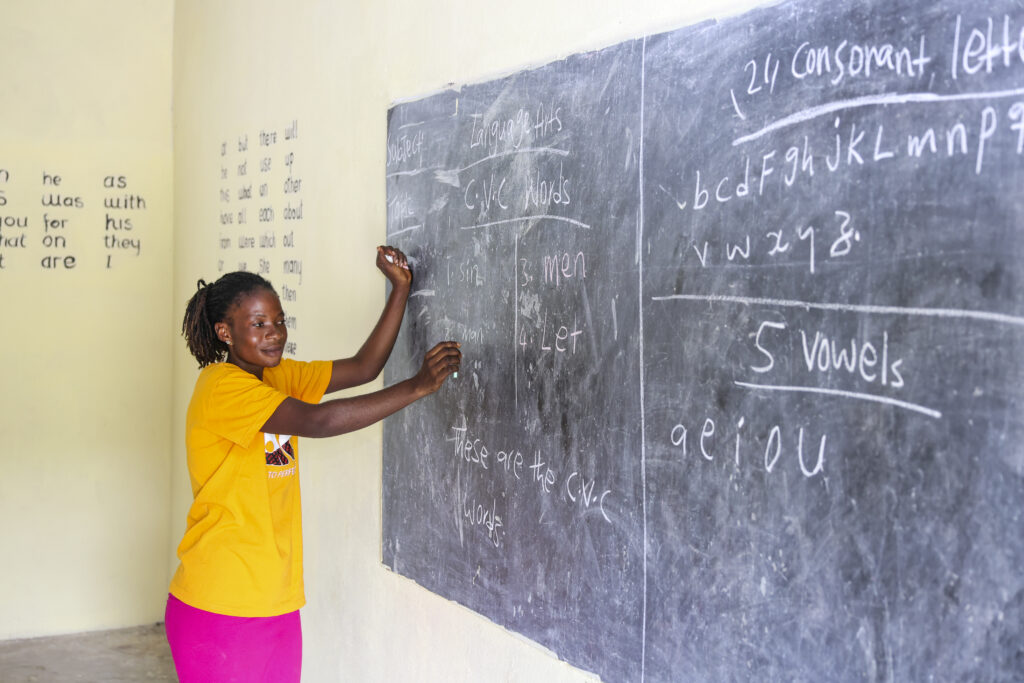 he as
was with
you for his
that on they
are I
at but there will
he not use up
this what an other
have all each about
from were which out
we she many
then
Subject Language Arts
C.V.C Words
1. sin 3. men
4. Let
These are the C.V.C
words.
TO
21 consonant lette
b c d F g h j k L m n p q
v w x y z.
5 Vowels
a e i o u